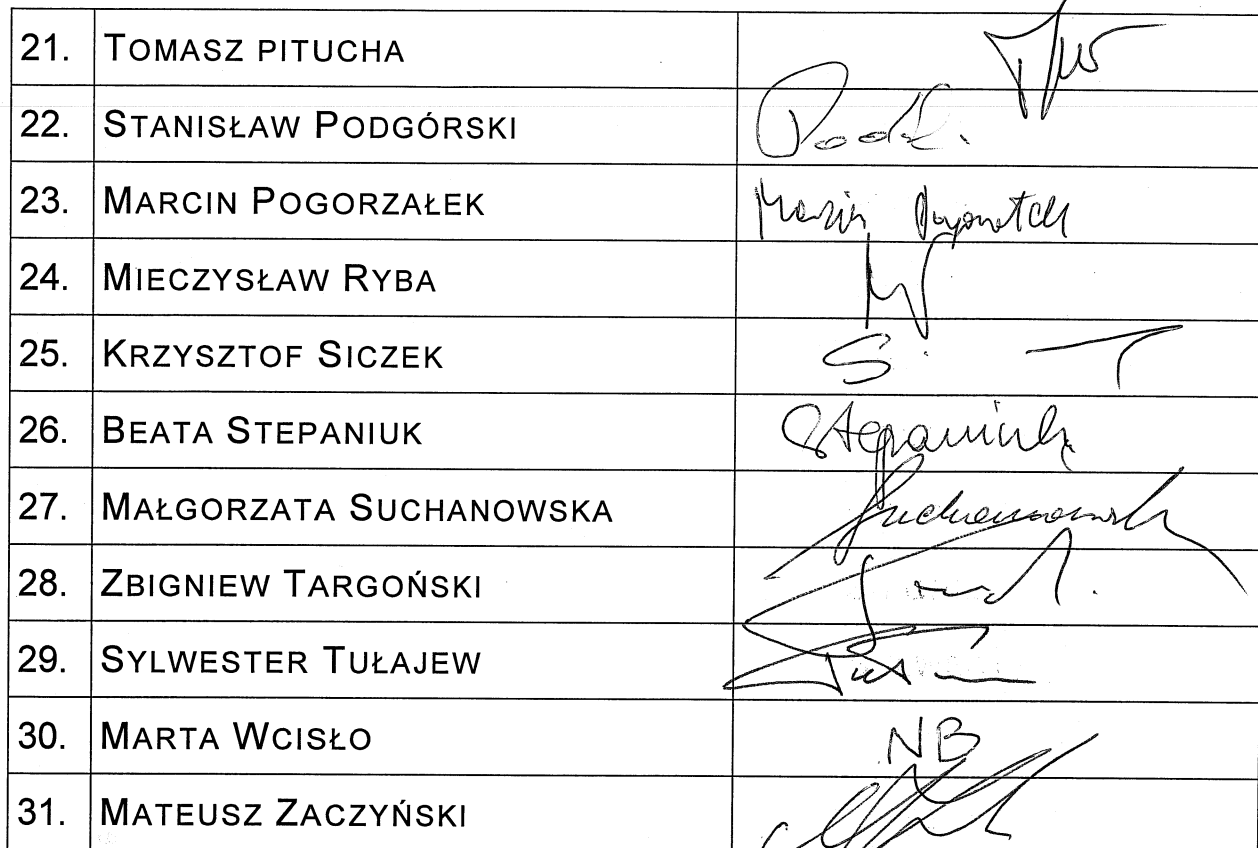 21. TOMASZ PITUCHA
22. STANISŁAW PODGÓRSKI
23. MARCIN POGORZAŁEK Marcin
24. MIECZYSŁAW RYBA
25. KRZYSZTOF SICZEK
26. BEATA STEPANIUK Stepaniuk
27. MAŁGORZATA SUCHANOWSKA Suchanowska
28. ZBIGNIEW TARGOŃSKI
29. SYLWESTER TUŁAJEW
30. MARTA WCISŁO NB
31. MATEUSZ ZACZYŃSKI